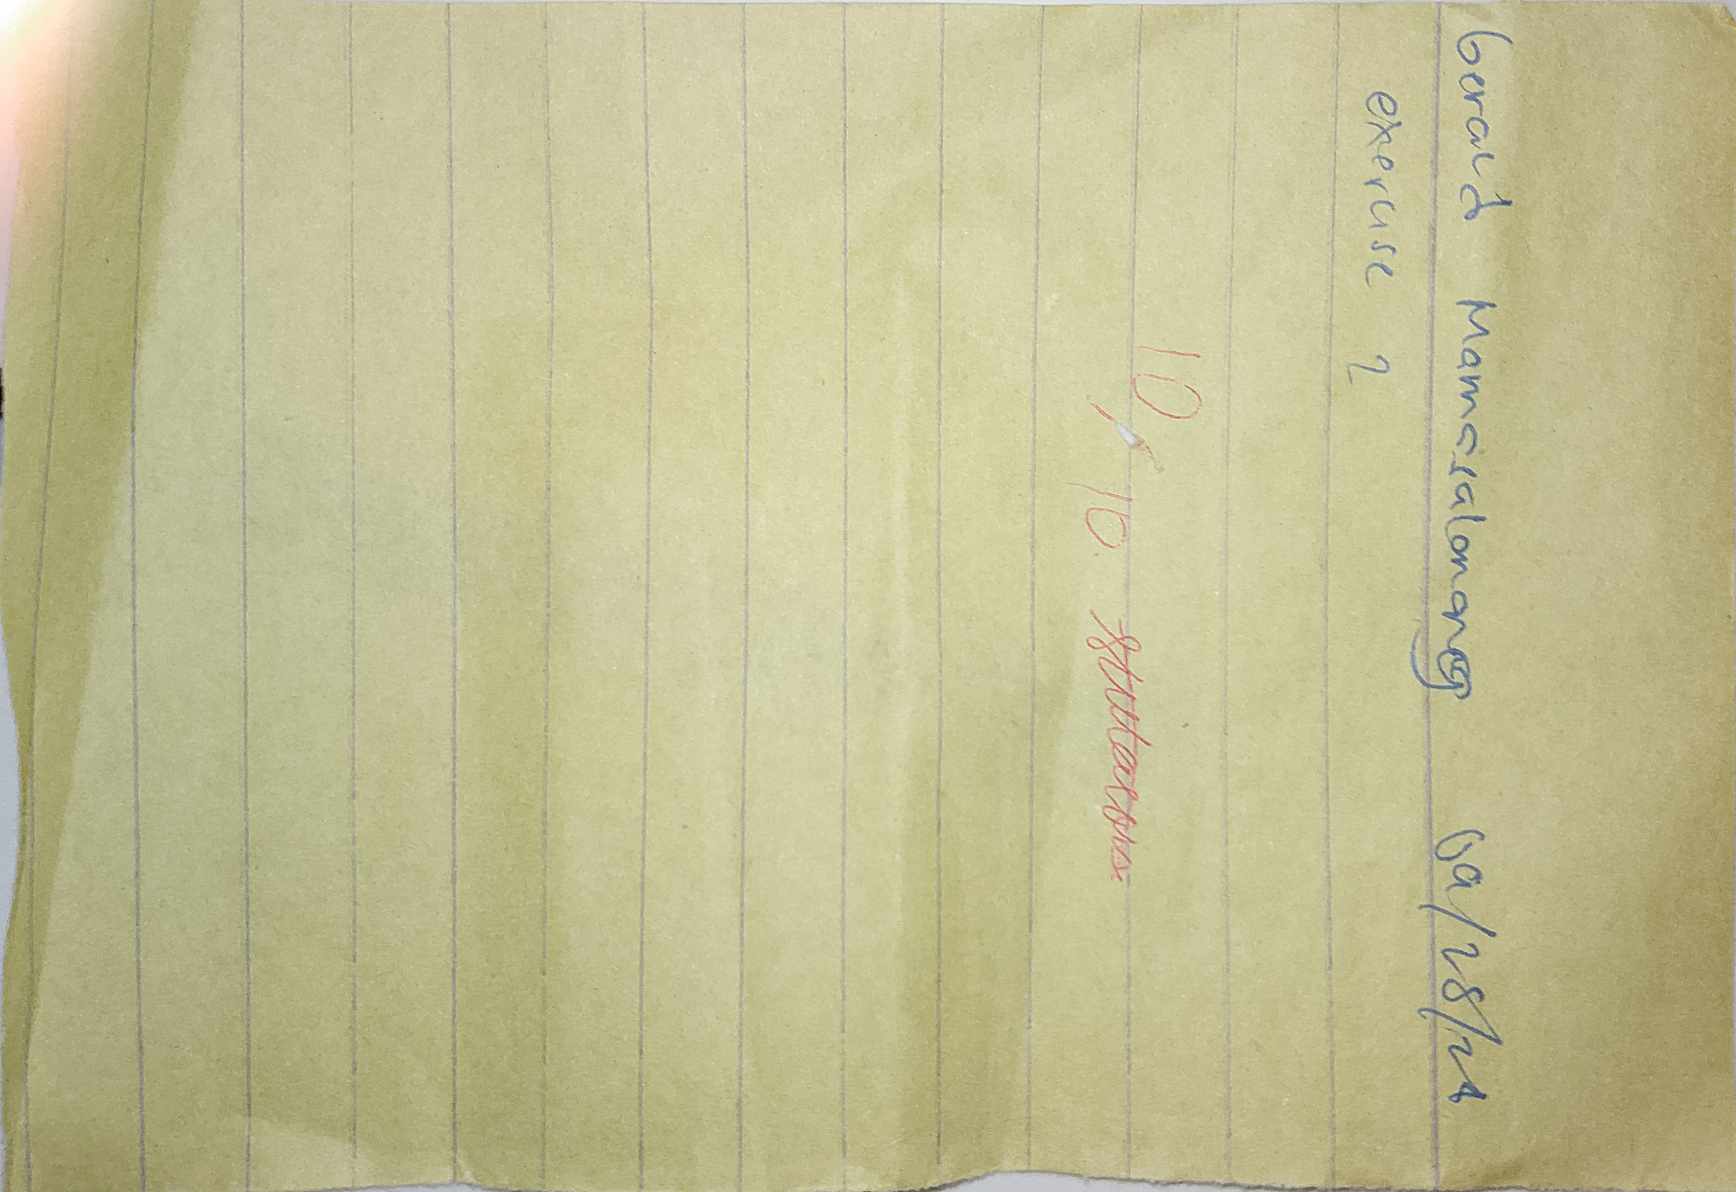 Gerald Mamasalanang 09/28/24
exercise 2
10
10.